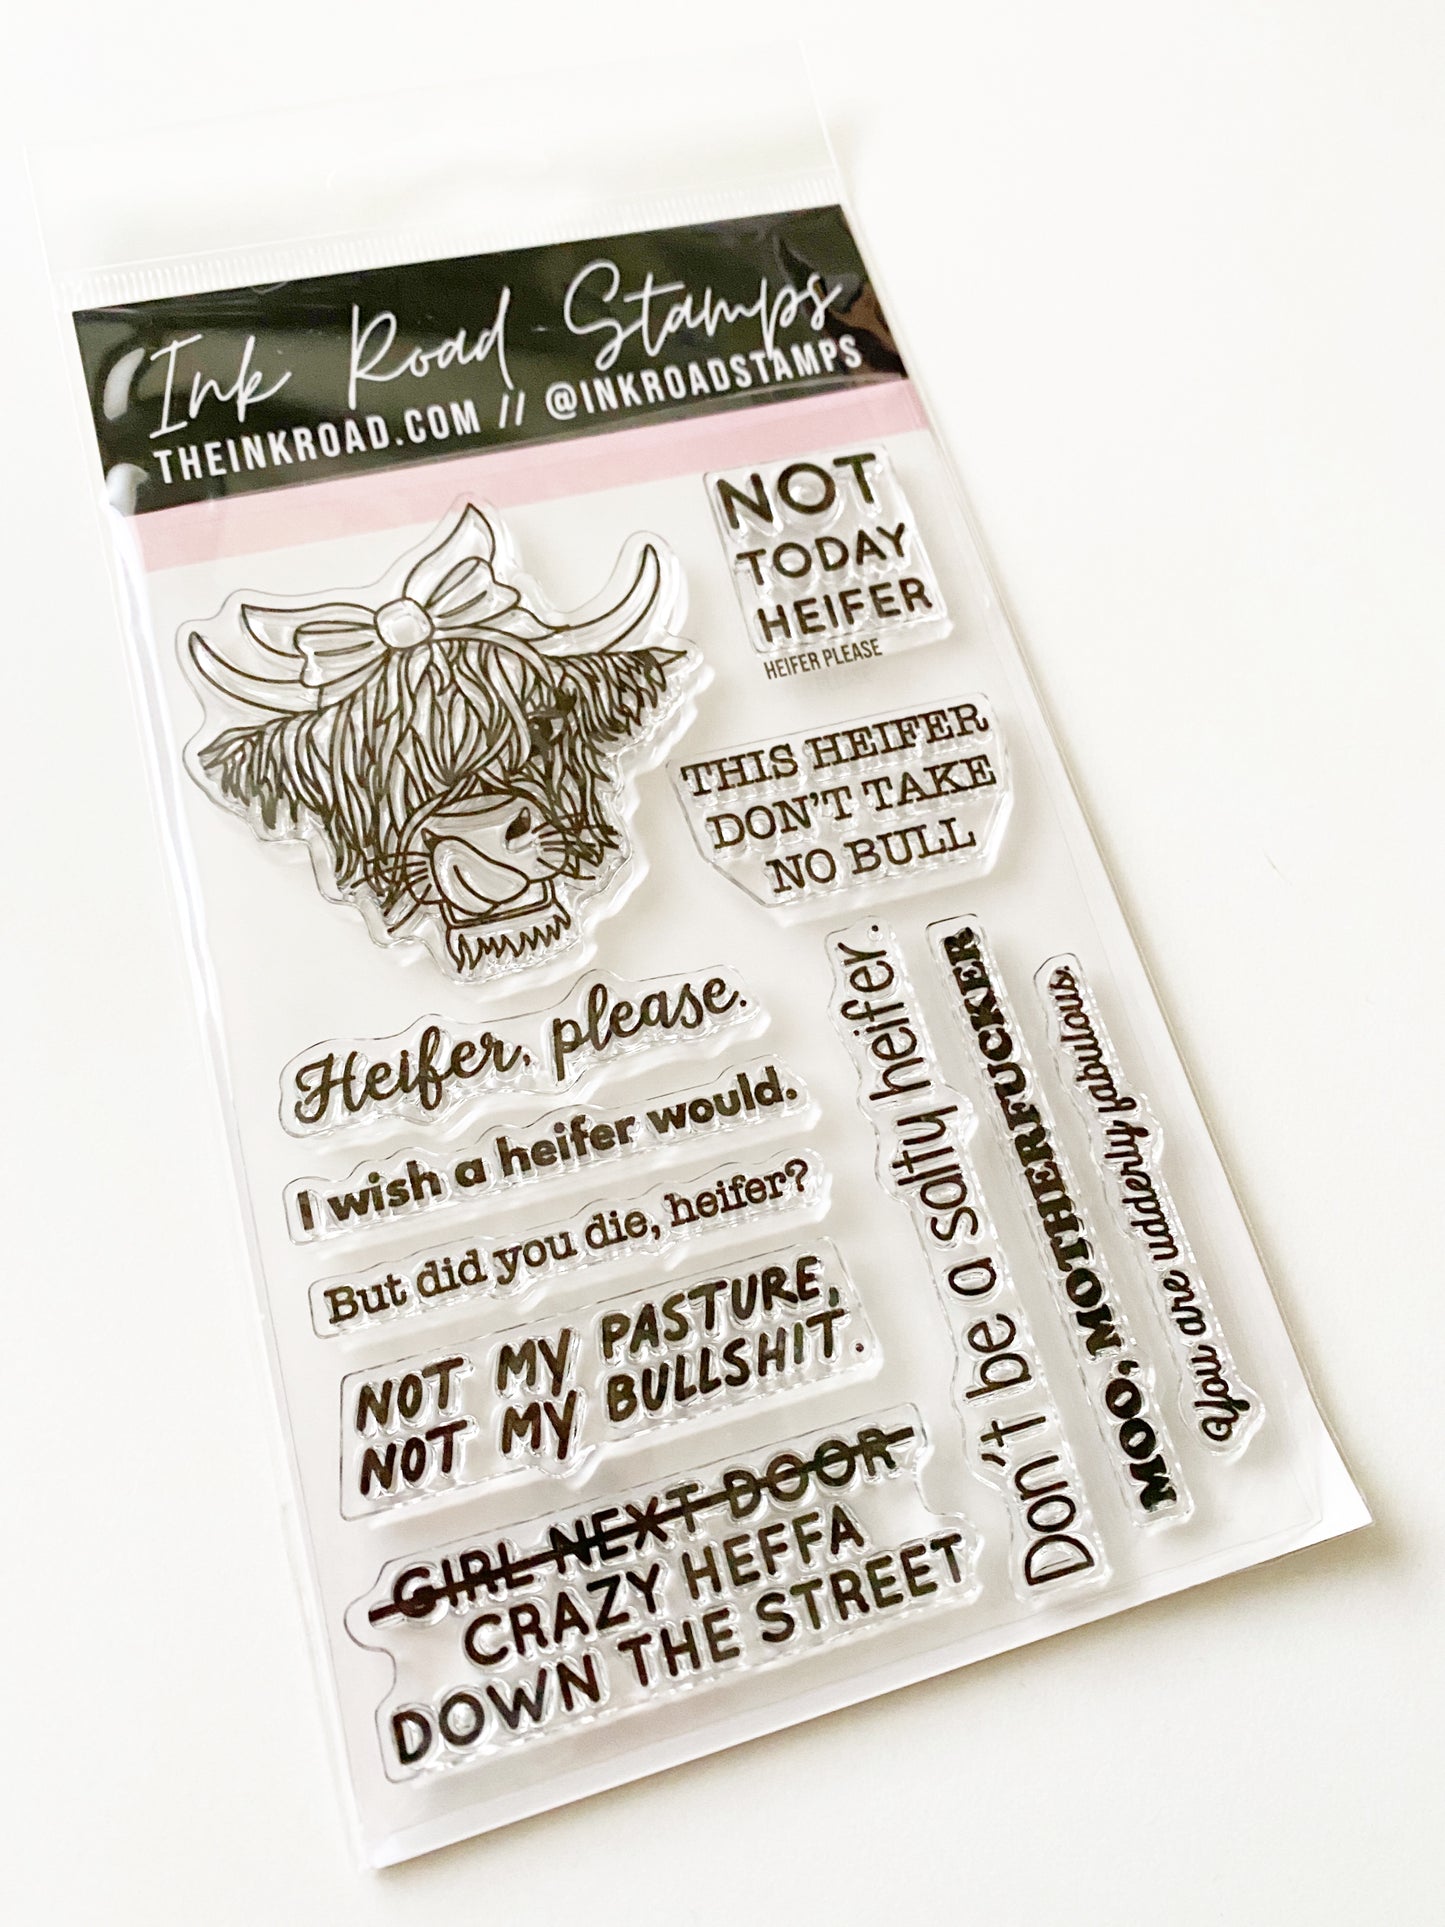 Ink Road Stamps
THEINKROAD.COM // @INKROADSTAMPS
NOT
TODAY
HEIFER
HEIFER PLEASE
THIS HEIFER
DON'T TAKE
NO BULL
Heifer, please.
I wish a heifer would.
But did you die, heifer?
NOT MY PASTURE,
NOT MY BULLSHIT.
GIRL NEXT DOOR
CRAZY HEFFA
DOWN THE STREET
Don't be a salty heifer.
MOO, MOTHERFUCKER
You are udderly fabulous.